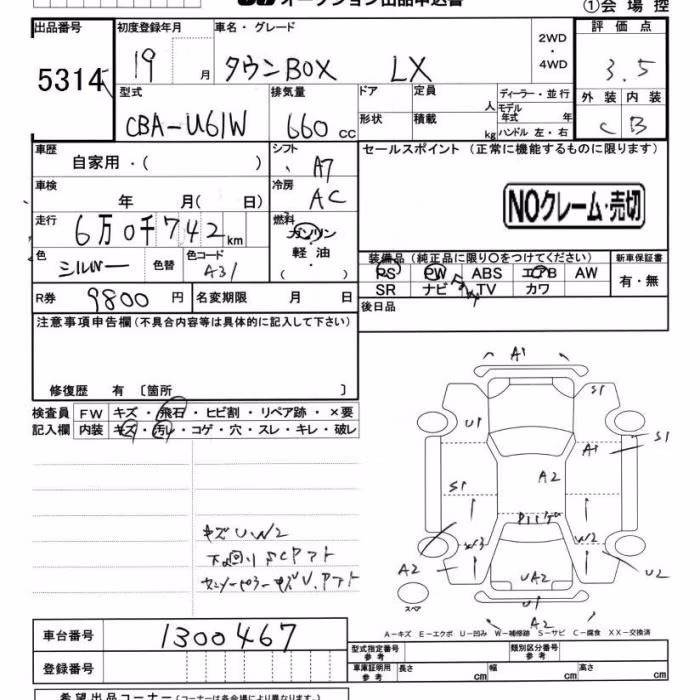 オークション出品申込書
①会場控
出品番号 初度登録年月 車名・グレード 2WD・4WD 評価点
5314 19 月 タウンBOX LX 3.5
型式 排気量 ドア 定員 人 ディーラー・並行 外装 内装
CBA-U61W 660 cc 形状 積載 kg モデル年式 年 ハンドル 左・右 C B
車歴 シフト セールスポイント(正常に機能するものに限ります)
自家用・( ) A7
車検 冷房 NOクレーム・売切
年 月( 日) AC
走行 燃料
6万0千742km ガソリン
色 色替 色コード 軽油 装備品(純正品に限り○をつけてください) 新車保証書
シルバー A31 ・( ) PS PW ABS エアB AW 有・無
R券 名変期限 SR ナビ TV カワ
9800円 月 日 後日品
注意事項申告欄(不具合内容等は具体的に記入して下さい)
修復歴 有 〔箇所 〕
検査員 FW キズ・飛石・ヒビ割・リペア跡・×要
記入欄 内装 キズ・汚レ・コゲ・穴・スレ・キレ・破レ
A1
S1
U1
A1
S1
A2
S1
W3
W2
A2
UA2
U2
スペア
U1
A2
キズUW2
下廻りSCPアト
A-キズ E-エクボ U-凹み W-補修跡 S-サビ C-腐食 XX-交換済
車台番号 1300467
登録番号
型式指定番号 参考 類別区分番号 参考
車庫証明用 参考 長さ cm 幅 cm 高さ cm
希望出品コーナー(コーナーは各会場により異なります。)